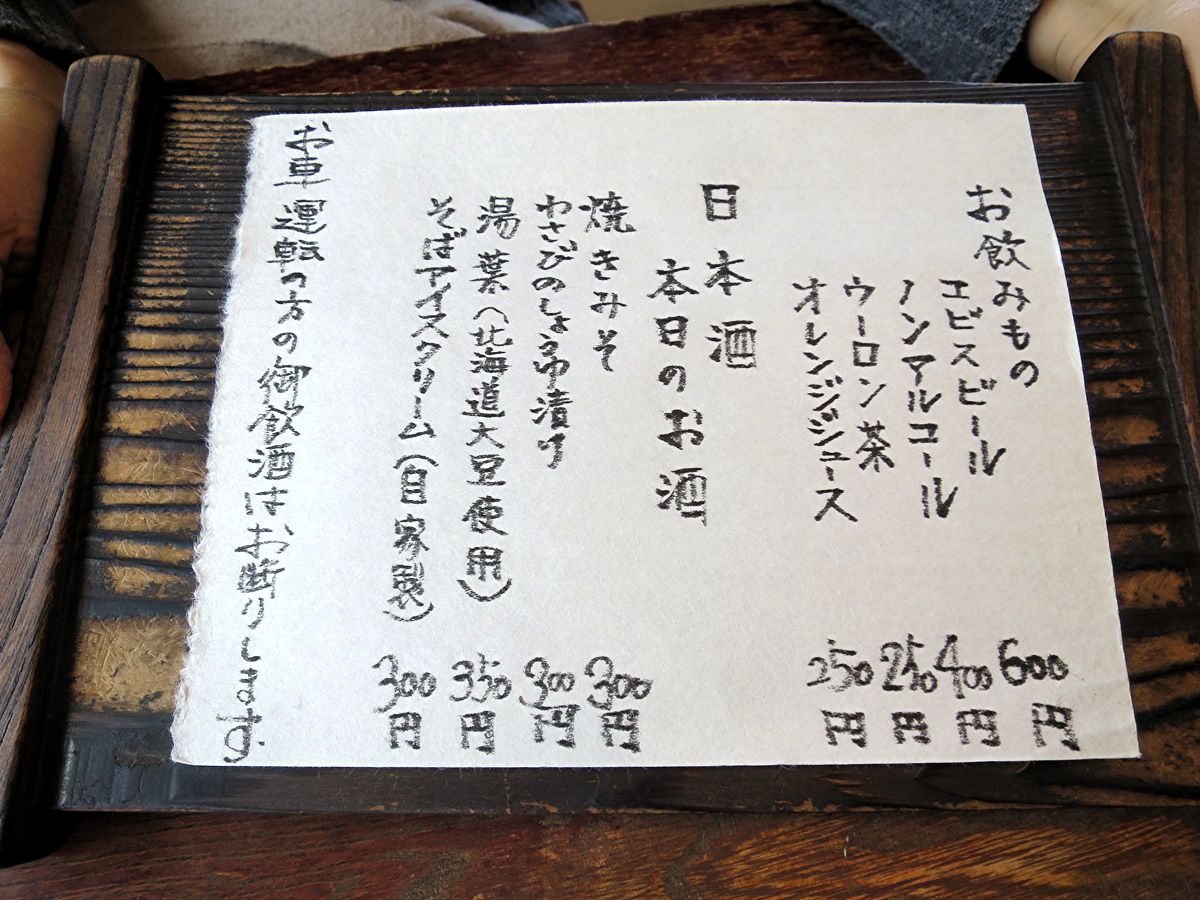 お飲みもの
エビスビール 600円
ノンアルコール 400円
ウーロン茶 250円
オレンジジュース 250円
日本酒
本日のお酒
焼きみそ 300円
わさびのしょう油漬け 300円
湯葉(北海道大豆使用) 350円
そばアイスクリーム(自家製) 300円
お車運転の方の御飲酒はお断りします。